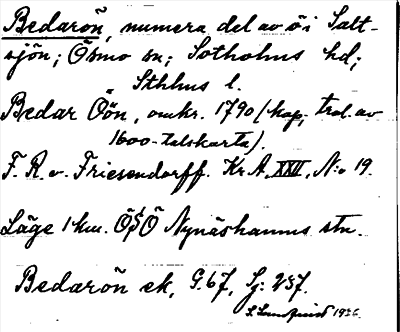 Bedarön, numera del av ö i Salt-
sjön; Ösmo sn; Sotholms hd;
Sthlms l.
Bedar Öön, omkr. 1790 (kop. trol. av
1600-talskarta).
F. R. v. Friesendorff. Kr.A. XXII, N:o 19.
Läge 1 km. ÖSÖ Nynäshamns stn.
Bedarön ek, G. 67, Sj: 237.
1936